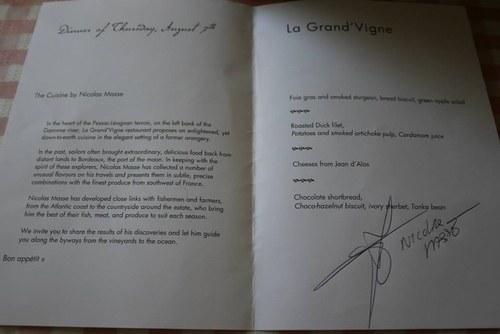 Dinner of Thursday, August 7th
The Cuisine by Nicolas Masse
In the heart of the Pessac-Léognan terroir, on the left bank of the
Garonne river, La Grand'Vigne restaurant proposes an enlightened, yet
down-to-earth cuisine in the elegant setting of a former orangery.
In the past, sailors often brought extraordinary, delicious food back from
distant lands to Bordeaux, the port of the moon. In keeping with the
spirit of these explorers, Nicolas Masse has collected a number of
unusual flavours on his travels and presents them in subtle, precise
combinations with the finest produce from southwest of France.
Nicolas Masse has developed close links with fishermen and farmers,
from the Atlantic coast to the countryside around the estate, who bring
him the best of their fish, meat, and produce to suit each season.
We invite you to share the results of his discoveries and let him guide
you along the byways from the vineyards to the ocean.
Bon appétit »
La Grand'Vigne
Foie gras and smoked sturgeon, bread biscuit, green apple salad
Roasted Duck filet,
Potatoes and smoked artichoke pulp, Cardamom juice
Cheeses from Jean d'Alos
Chocolate shortbread,
Choco-hazelnut biscuit, ivory sherbet, Tonka bean
NICOLAS
MASSE